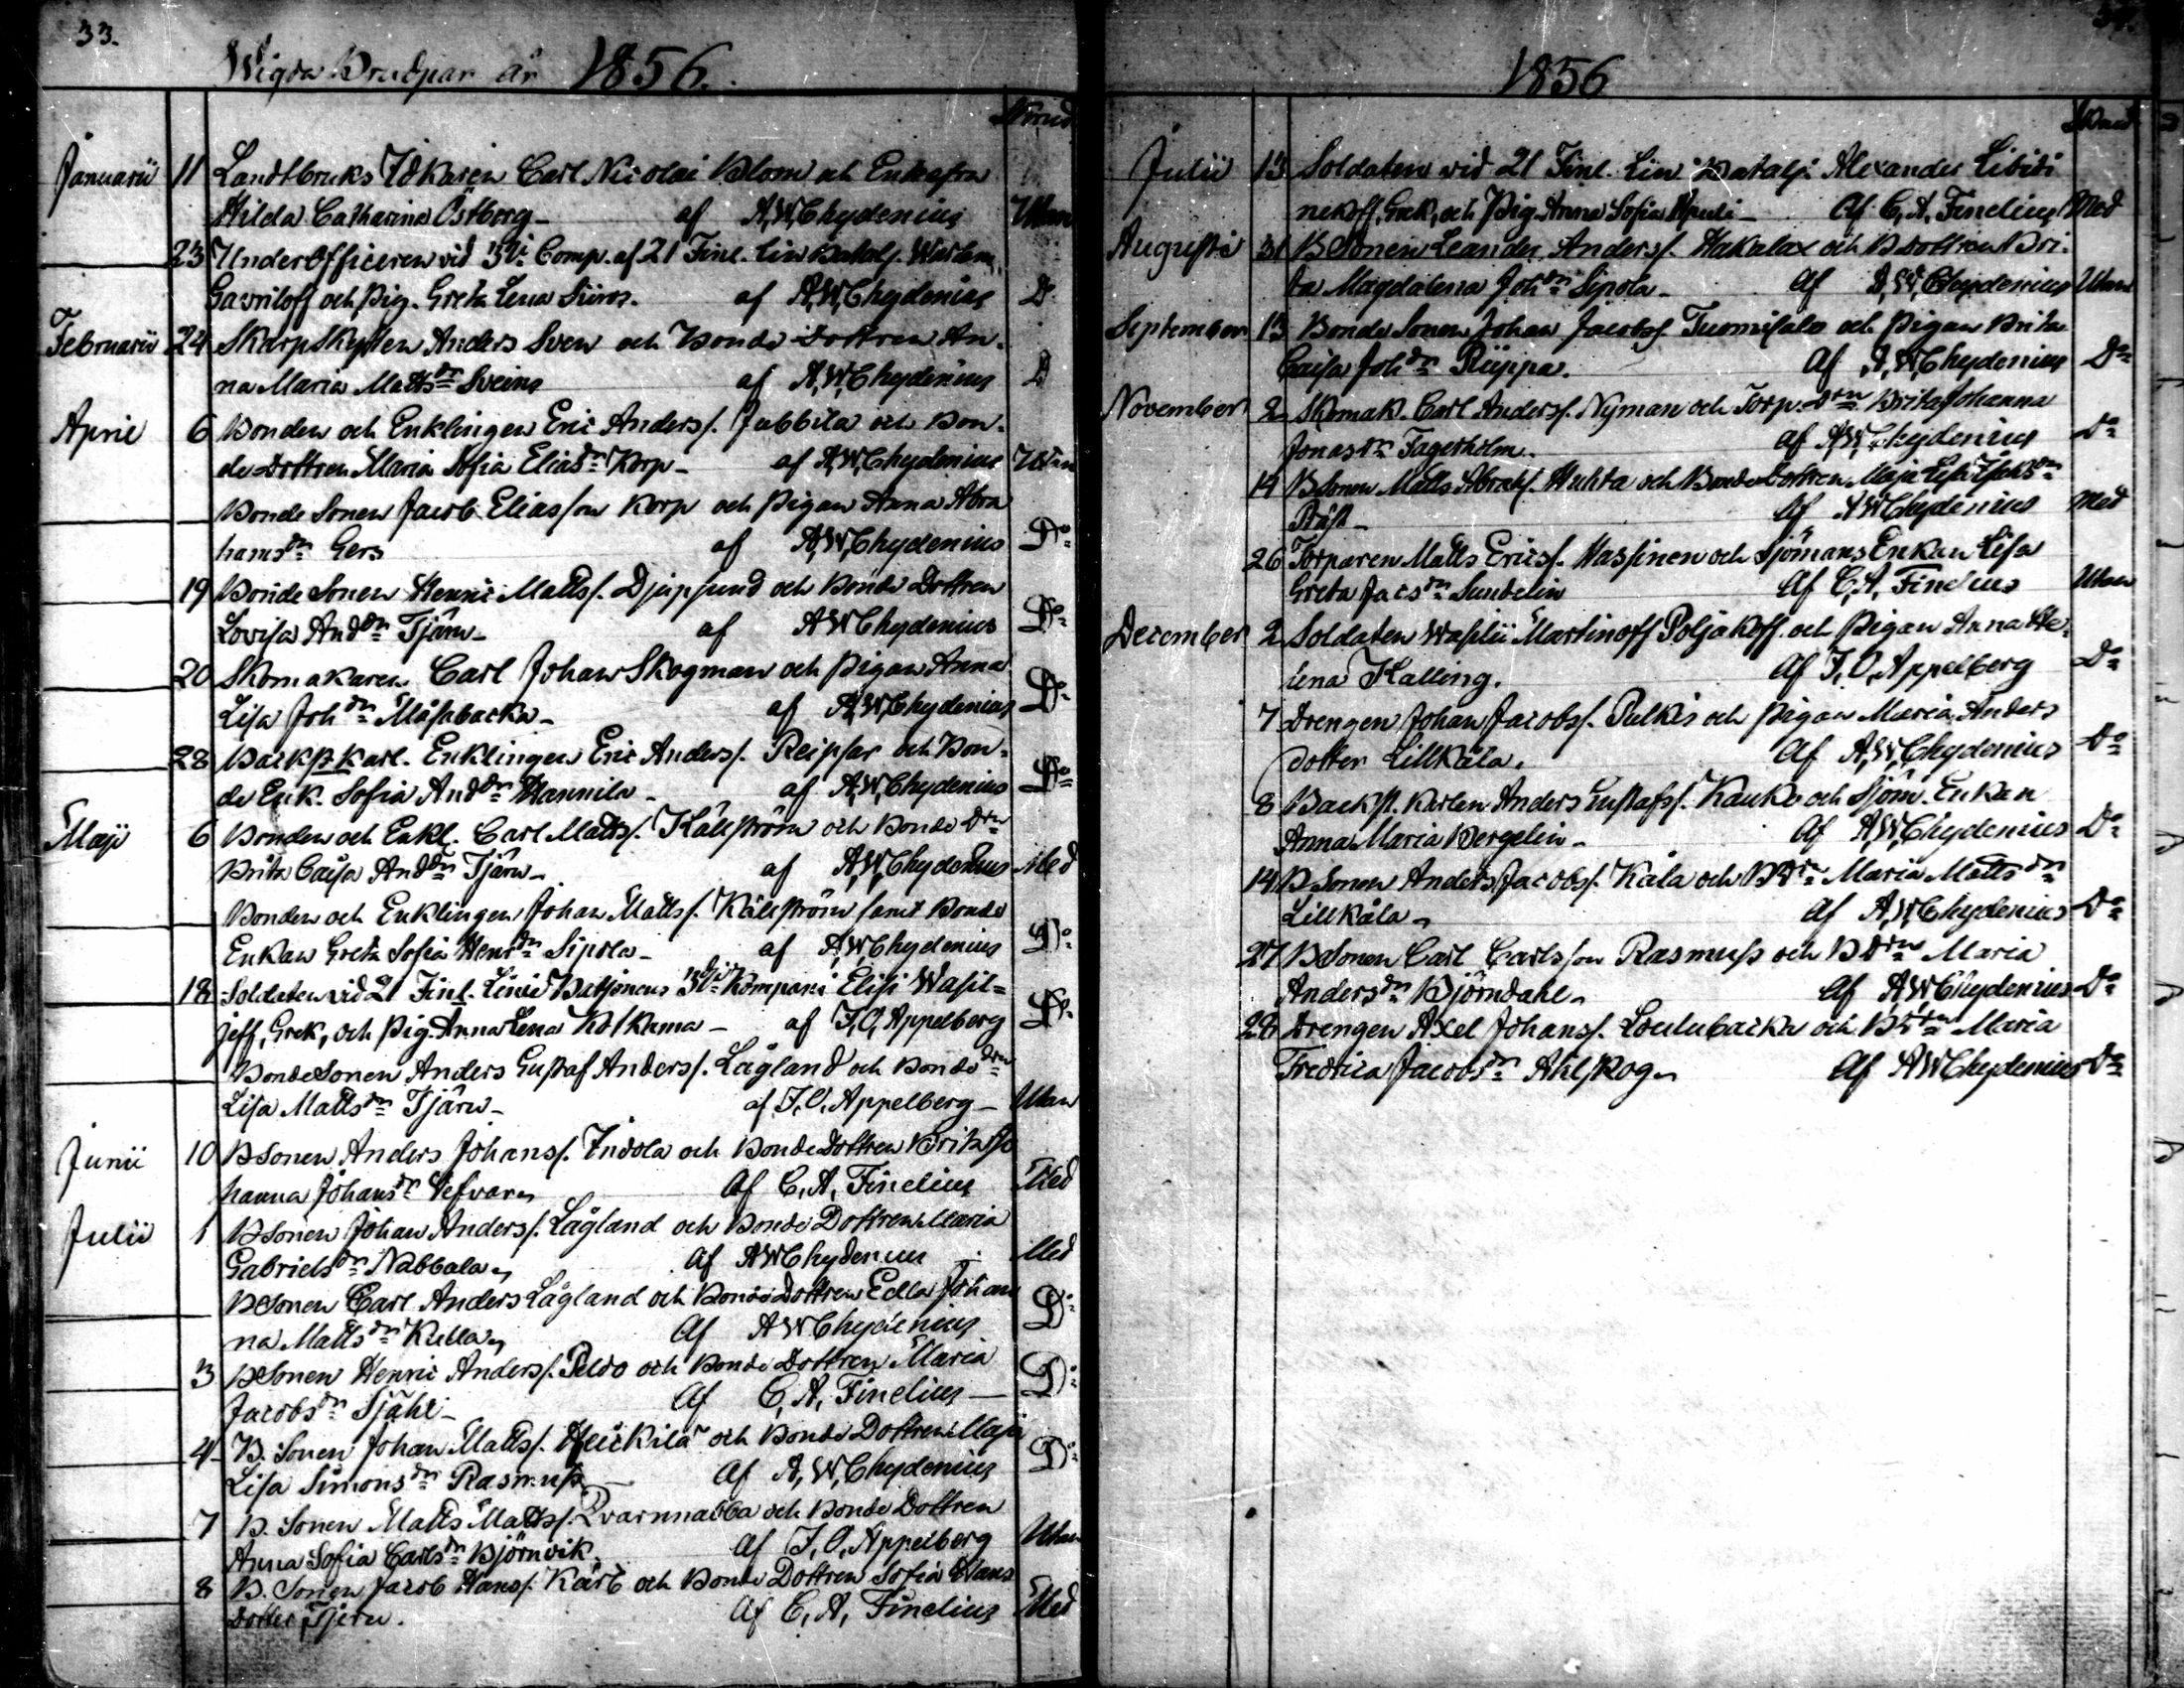 33.
Wigda Brudpar år 1856.
Januarii 11 Landtbruks Idkaren Carl Nicolai Blom och Enkefru
Hilda Catharina Östberg - af A,W,Chydenius Utan
23 Underofficeren vid 3di Comp. af 21 Finl. Lin Batalj. Warlam
Gavriloff och Pig. Greta Lena Siiros. af A,W,Chydenius D
Februarii 24 Skarpskytten Anders Sven och Bonde Dottren An-
na Maria Matts dr Sveins af A,W,Chydenius D
April 6 Bonden och Enklingen Eric Anders s. Jubbila och Bon-
de Dottren Maria Sofia Elias dr Korp - af A,W,Chydenius Utan
Bonde Sonen Jacob Eliasson Korp och Pigan Anna Abra
hams dr Gers af A,W,Chydenius Do
19 Bonde Sonen Henric Matts s. Djupsund och Bonde Dottren
Lovisa And dr Tjäru - af A W Chydenius Do
20 Skomakaren Carl Johan Skogman och Pigan Anna
Lisa Joh dr Måsabacka - af A,W,Chydenius Do
28 Backst. Karl. Enklingen Eric Anders s. Reipsar och Bon-
de Enk. Sofia And dr Hannila - af A,W,Chydenius Do
Maji 6 Bonden och Enkl. Carl Matts s. Källström och Bonde Drn
Brita Caisa And dr Tjäru - af A,W,Chydenius Med
Bonden och Enklingen Johan Matts s. Källström samt Bonde
Enkan Greta Sofia Henr dr Sipola - af A,W,Chydenius Do
18 Soldaten vid 21 Finl. Linie Batjonens 3di Kompani Elisi Wasil=
jeff, Grek, och Pig. Anna Lena Kotkama - af F,O, Appelberg Do
Bonde Sonen Anders Gustaf Anders s. Lågland och Bonde drn
Lisa Matts dr Tjäru - af F,O, Appelberg - Utan
Junii 10 B Sonen Anders Johans s. Indola och Bonde Dottren Brita Jo
hanna Johans dr Vefvar Af C, A, Finelius Med
Julii 1 B Sonen Johan Anders s. Lågland och Bonde Dottren Maria
Gabriels dr Nabbala Af A W Chydenius - Med
B Sonen Carl Anders Lågland och Bonde Dottren Edla Johan
na Matts dr Kella Af A W Chydenius Do
3 B Sonen Henric Anders s. Peldo och Bonde Dottren Maria
Jacobs dr Sjöhl - Af C, A, Finelius - Do
4 B. Sonen Johan Matts s. Heickilä och Bonde Dottren Maja
Lisa Simons dr Rasmuss - Af A, W, Chydenius Do
7 B. Sonen Matts Matts s. Qvarnnabba och Bonde Dottren
Anna Sofia Carls dr Björnvik. Af F, O, Appelberg Utan
8 B. Sonen Jacob Hans s. Kärb och Bonde Dottren Sofia Hans
Dotter Tjeru. Af C, A, Finelius Med
1856
Julii 13 Soldaten vid 21 Finl. Lin Batalj. Alexander Libiti
nikoff, Grek, och Pig. Anna Sofia - Af C, A, Finelius Med
Augusti 31 B Sonen Leander Anders s. Hakalax och B Dottren Bri-
ta Magdalena Joh dr Sipola - Af A, W, Chydenius Utan
September 13 Bonde Sonen Johan Jacobs s. Tuomisalo och Pigan Brita
Caisa Joh dr Riippa. Af A, W, Chydenius Do
November 2 Skomak. Carl Anders s. Nyman och Torp. Drn Brita Johanna
Jonas dr Fagerholm. Af A W Chydenius Do
14 B Sonen Matts Abrah s. Huhta och Bonde Dottren Maja Lisa
Präst - Af A W Chydenius Med
26 Torparen Matts Erics s. Hassinen och Sjömans Enkan Lisa
Greta Jacs dr Sundelin Af C, A, Finelius Utan
December 2 Soldaten Wasilii Martinoff Poljakoff och Pigan Anna He-
lena Kalling. Af F, O, Appelberg Do
7 Drengen Johan Jacobs s. Pulkis och Pigan Maria Anders
dotter Lillkåla. Af A, W, Chydenius Do
8 Backst. Karlen Anders Gustafs s. Kauko och Sjöm. Enkan
Anna Maria Bergelin - Af A, W, Chydenius Do
14 B Sonen Anders Jacobs s. Kåla och B Drn Maria Matts dr
Lillkåla - Af A, W, Chydenius Do
27 B Sonen Carl Carlsson Rasmuss och B Drn Maria
Anders dr Björndahl - Af A W Chydenius Do
28 Drengen Axel Johans s. Loulubacka och B Drn Maria
Fredrica Jacobs dr Ahlskog Af A W Chydenius Do